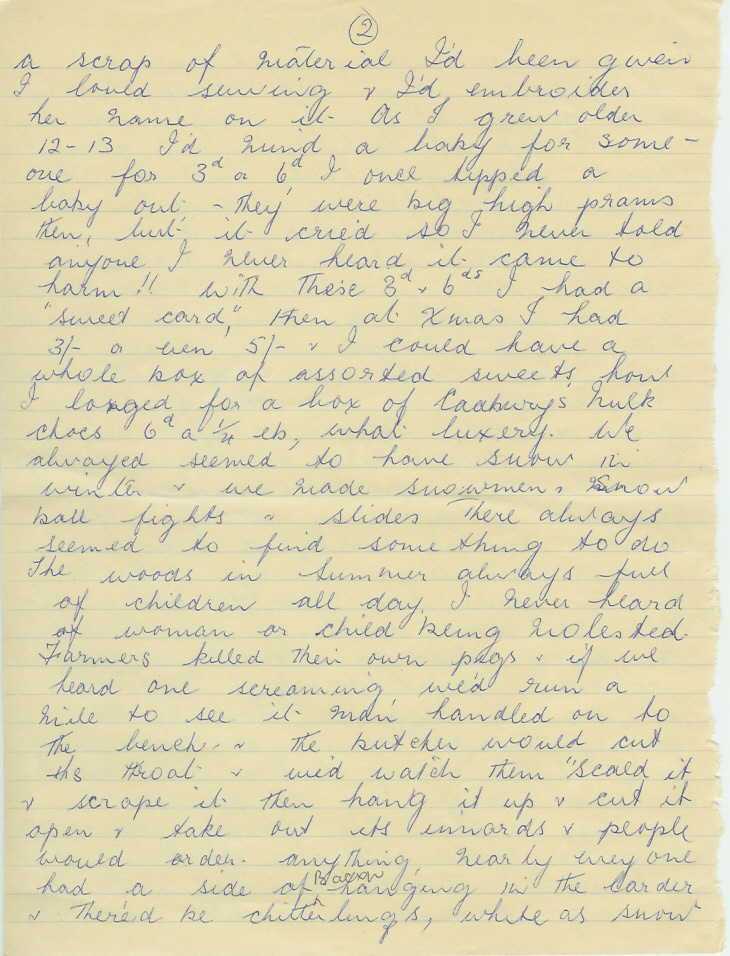 2
a scrap of material I'd been given
I loved sewing & I'd embroider
her name on it. As I grew older
12-13 I'd mind a baby for some-
one for 3d or 6d I once tipped a
baby out - they were big high prams
then, but it cried so I never told
anyone I never heard it came to
harm!! With these 3d & 6ds I had a
"sweet card," then at Xmas I had
3/- or even 5/- & I could have a
whole box of assorted sweets, how
I longed for a box of Cadburys milk
chocs 6d a 1/4 lb, what luxery. We
alwayed seemed to have snow in
winter & we made snowmen, Snow
ball fights & slides There always
seemed to find some thing to do
The woods in Summer always full
of children all day. I never heard
of woman or child being molested.
Farmers killed their own pigs & if we
heard one screaming we'd run a
mile to see it man handled on to
the bench. & the butcher would cut
its throat & we'd watch them "scald it
& scrape it then hang it up & cut it
open & take out its innards & people
would order anything, nearly every one
had a side of Bacon hanging in the larder
& There'd be chitterlings, white as snow